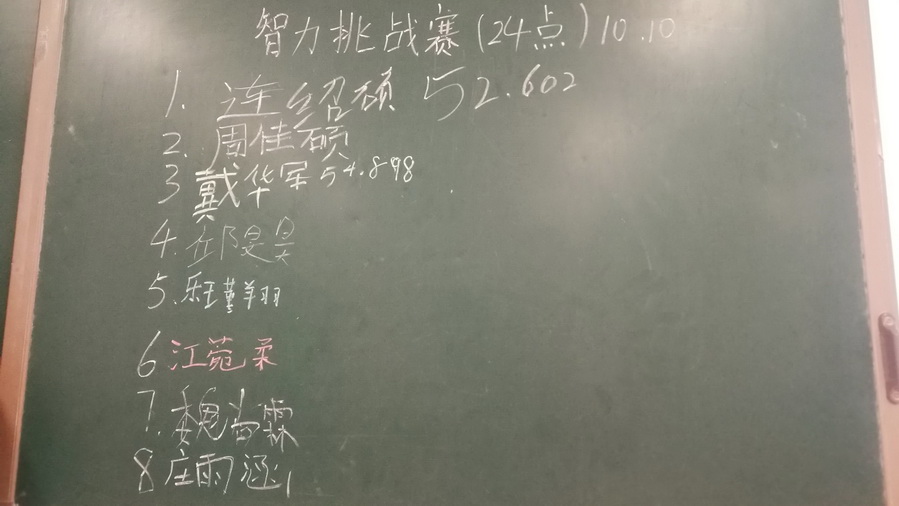 智力挑战赛(24点)10.10
1. 连绍硕 52.602
2. 周佳硕
3 戴华军 54.898
4. 邱是昊
5. 瑾翔
6 江菀柔
7. 魏尚霖
8 庄雨涵